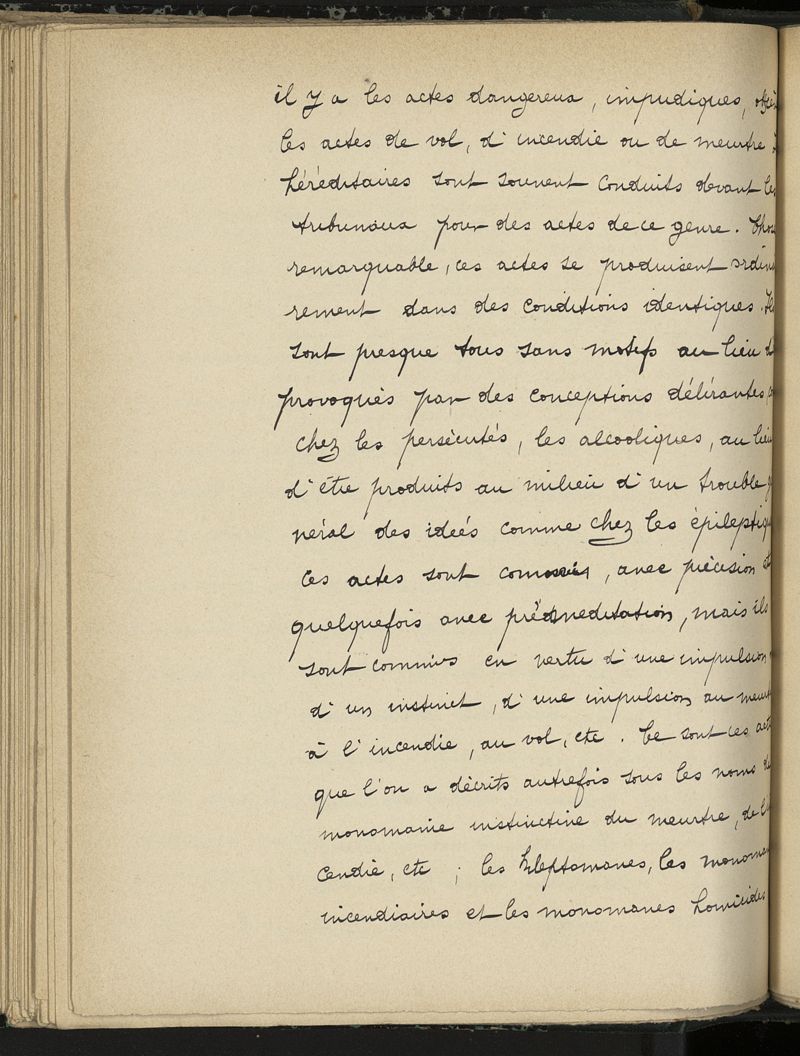 il y a les actes dangereux, impudiques,
les actes de vol, d'incendie ou de meurtre
héréditaires sont souvent conduits devant les
tribunaux pour des actes de ce genre.
remarquable, ces actes se produisent
rement dans des conditions identiques.
sont presque tous sans motifs au lieu
provoqués par des conceptions délirantes
chez les persécutés, les alcooliques, au lieu
d'être produits au milieu d'un trouble
néral des ideés comme chez les
Ces actes sont , avec précision
quelquefois avec préméditation, mais ils
sont commis en vertu d'une impulsion
d'un instinct, d'une impulsion au
à l'incendie, au vol, etc. Ce sont ces
que l'on a décrits autrefois sous les noms
monomanie instinctive du meurtre,
cendie, etc ; les kleptomanes, les
incendiaires et les monomanes homicides